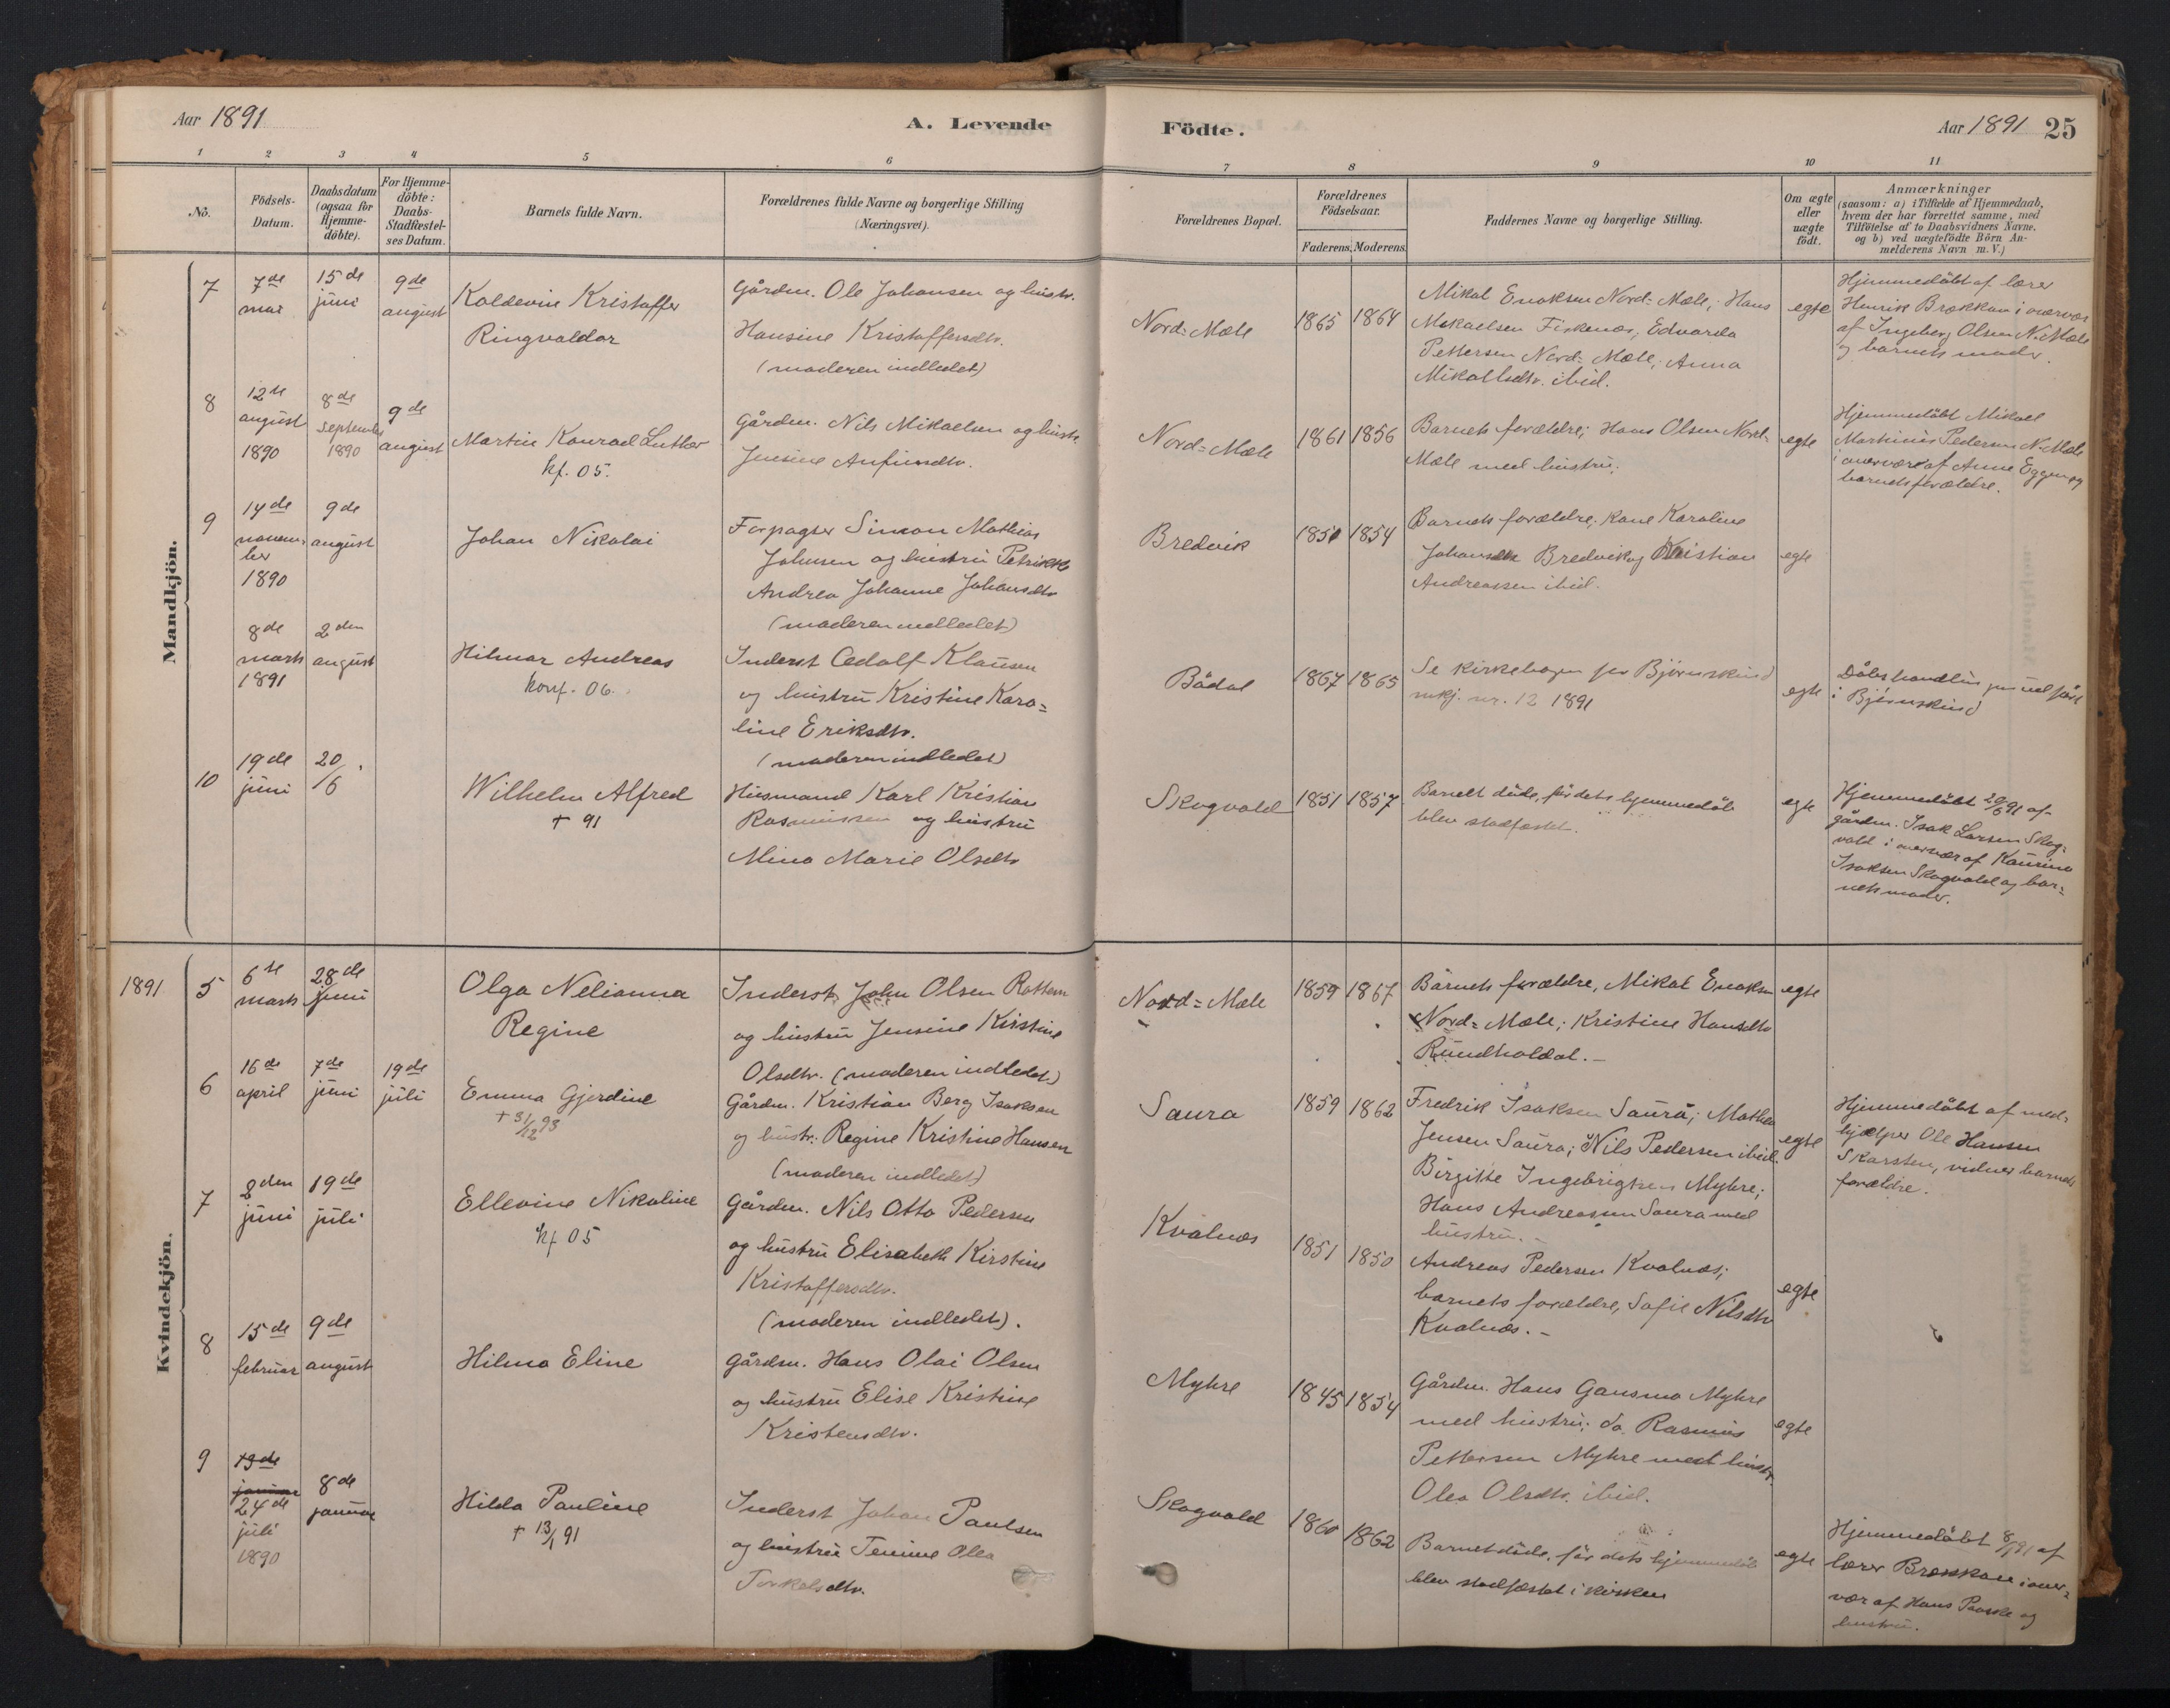 Aar 1891
A. Levende
Födte.
Aar 1891 25
1 2 3 4 5 6 7 8 9 10 11
No.
Födsels-
Datum.
Daabsdatum
(ogsaa for
Hjemme-
döbte).
For Hjemme-
döbte:
Daabs-
Stadfæstel-
ses Datum.
Barnets fulde Navn.
Forældrenes fulde Navne og borgerlige Stilling
(Næringsvei).
Forældrenes Bopæl.
Forældrenes
Födselsaar.
Faderens. Moderens.
Faddernes Navne og borgerlige Stilling.
Om ægte
eller
uægte
født.
Anmærkninger
(saasom: a) i Tilfælde af Hjemmedaab,
hvem der har forrettet samme, med
Tilföielse af to Daabsvidners Navne.
og b) ved uægtefödte Börn An-
melderens Navn m. V.)
Mandkjön.
7
7de
mai
15de
juni
9de
august
Koldevin Kristoffer
Ringvaldar
Gårdm. Ole Johansen og hustr.
Hansine Kristoffersdtr.
(moderen indledet)
Nord-Mæle
1865 1864
Mikal Enoksen Nord-Mæle; Hans
Mikaelsen Fiskenes, Edvarda
Pettersen Nord-Mæle; Anna
Mikallsdtr. ibid.
egte
Hjemmedöbt af lærer
Henrik Brækkan i overvær
af Ingeberg Olsen N. Mæle
og barnets moder.
8
12te
august
1890
8de
september
1890
9de
august
Martin Konrad Luther
kf. 05.
Gårdm. Nils Mikaelsen og hustr
Jensine Anfinsdtr.
Nord-Mæle
1861 1856
Barnets forældre; Hans Olsen Nord-
Mæle med hustru;
egte
Hjemmedöbt Mikael
Martinus Pedersen N. Mæle
i overvær af Anne Eggen og
barnets forældre.
9
14de
novem-
ber
1890
9de
august
Johan Nikolai
Forpagter Simon Mathias
Johnsen og hustru Petrikke
Andrea Johanne Johansdtr
(moderen indledet)
Bredvik
1850 1854
Barnets forældre; kone Karoline
Johansdtr Bredvik og Kristian
Andreassen ibid.
egte
8de
marts
1891
2den
august
Hilmar Andreas
konf. 06.
Inderst Cedolf Klausen
og hustru Kristine Karo-
line Eriksdtr.
(moderen indledet)
Bådal
1867 1865
Se kirkebogen for Bjørnskind
mkj. nr. 12 1891
egte
i Bjørnskind
10
19de
juni
20/6
Wilhelm Alfred
+ 91
Husmand Karl Kristian
Rasmussen og hustru
Mina Marie Olsdtr
Skogvold
1851 1857
Barnet døde, før dets hjemmedåb
blev stadfæstet.
egte
Hjemmedöbt 20/6 91 af
gårdm. Isak Larsen Skog-
vold i overvær af Kaurina
Isaksen Skogvold og bar-
nets moder.
1891
Kvindekjön.
5
6te
marts
28de
juni
Olga Nelianna
Regine
Inderst John Olsen Rottem
og hustru Jensine Kirstine
Olsdtr. (moderen indledet)
Nord-Mæle
1859 1867
Barnets forældre, Mikal Enoksen
Nord-Mæle; Kristine Hansdtr
Rundholdal.
egte
6
16de
april
7de
juni
19de
juli
Emma Gjerdine
+ 31/12 93
Gårdm. Kristian Berg Isaksen
og hustr: Regine Kristine Hansen
(moderen indledet)
Saura
1859 1862
Fredrik Isaksen Saura; Mathea
Jensen Saura; Nils Pedersen ibid.
Birgitte Ingebrigtsen Myhre;
Hans Andreassen Saura med
hustru.
egte
Hjemmedöbt af med-
hjælper Ole Hansen
Skarsten, vidner barnets
forældre.
7
2den
juni
19de
juli
Ellevine Nikoline
kf 05
Gårdm. Nils Otto Pedersen
og hustru Elisabeth Kirstine
Kristoffersdtr.
(moderen indledet).
Kvalnes
1851 1850
Andreas Pedersen Kvalnes;
barnets forældre, Sofie Nilsdtr
Kvalnes.
egte
8
15de
februar
9de
august
Hilma Eline
Gårdm. Hans Olai Olsen
og hustru Elise Kristine
Kristensdtr.
Myhre
1845 1854
Gårdm. Hans Gansmo Myhre
med hustru; do. Rasmus
Pettersen Myhre med hustr.
Olea Olsdtr. ibid.
egte
9
13de
januar
24de
juli
1890
8de
januar
Hilda Pauline
+ 13/1 91
Inderst Johan Paulsen
og hustru Tenine Olea
Torkelsdtr.
Skogvold
1860 1862
Barnet døde, før dets hjemmedåb
blev stadfæstet i kirken
egte
Hjemmedöbt 8/1 91 af
lærer Brækkan i over-
vær af Hans Paaske og
hustru.